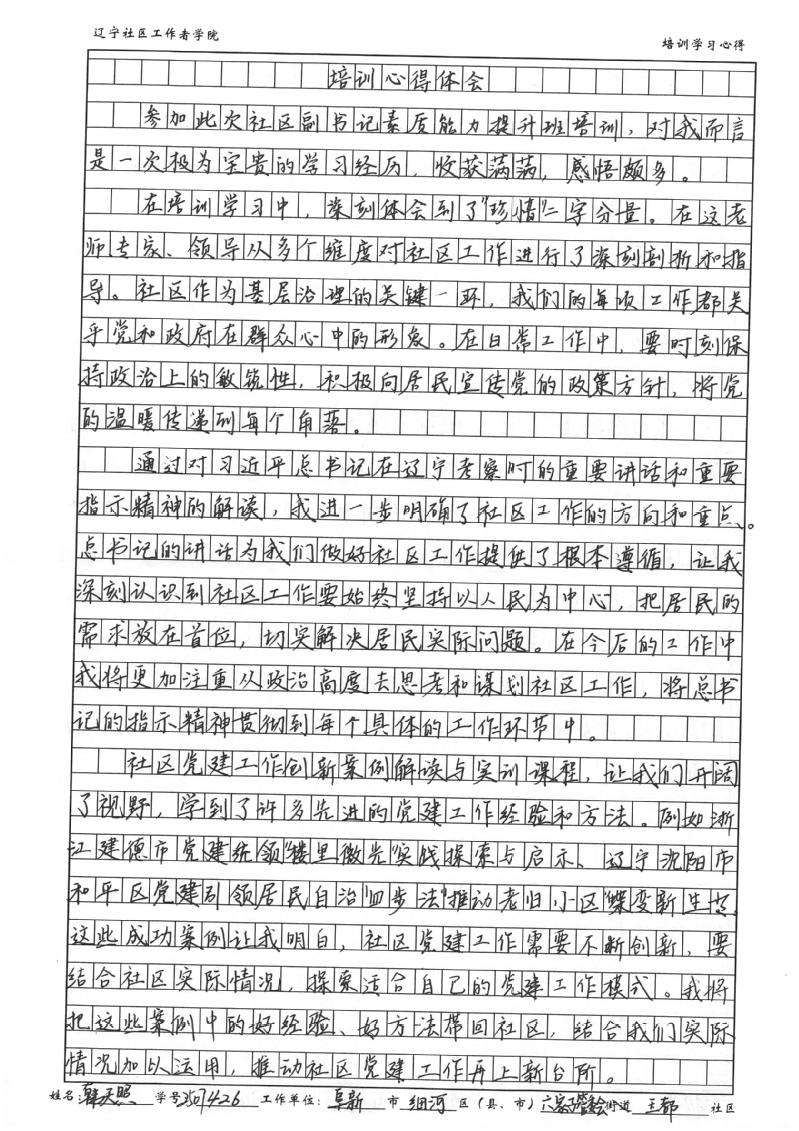 辽宁社区工作者学院
培训学习心得
培训心得体会
参加此次社区副书记素质能力提升班培训，对我而言
是一次极为宝贵的学习经历，收获满满，感悟颇多。
在培训学习中，深刻体会到了"珍惜"二字分量。在这老
师专家、领导从多个维度对社区工作进行了深刻剖析和指
导。社区作为基层治理的关键一环，我们的每项工作都关
乎党和政府在群众心中的形象。在日常工作中，要时刻保
持政治上的敏锐性，积极向居民宣传党的政策方针，将党
的温暖传递到每个角落。
通过对习近平总书记在辽宁考察时的重要讲话和重要
指示精神的解读，我进一步明确了社区工作的方向和重点。
总书记的讲话为我们做好社区工作提供了根本遵循，让我
深刻认识到社区工作要始终坚持以人民为中心，把居民的
需求放在首位，切实解决居民实际问题。在今后的工作中
我将更加注重从政治高度去思考和谋划社区工作，将总书
记的指示精神贯彻到每个具体的工作环节中。
社区党建工作创新案例解读与实训课程，让我们开阔
了视野，学到了许多先进的党建工作经验和方法。例如浙
江建德市党建统领"楼里微先"实践探索与启示、辽宁沈阳市
和平区党建引领居民自治"四步法"推动老旧小区"蝶变新生"。
这些成功案例让我明白，社区党建工作需要不断创新，要
结合社区实际情况，探索适合自己的党建工作模式。我将
把这些案例中的好经验、好方法带回社区，结合我们实际
情况加以运用，推动社区党建工作再上新台阶。
姓名：韩天照 学号 工作单位：阜新 市 细河 区（县、市） 街道 玉都 社区